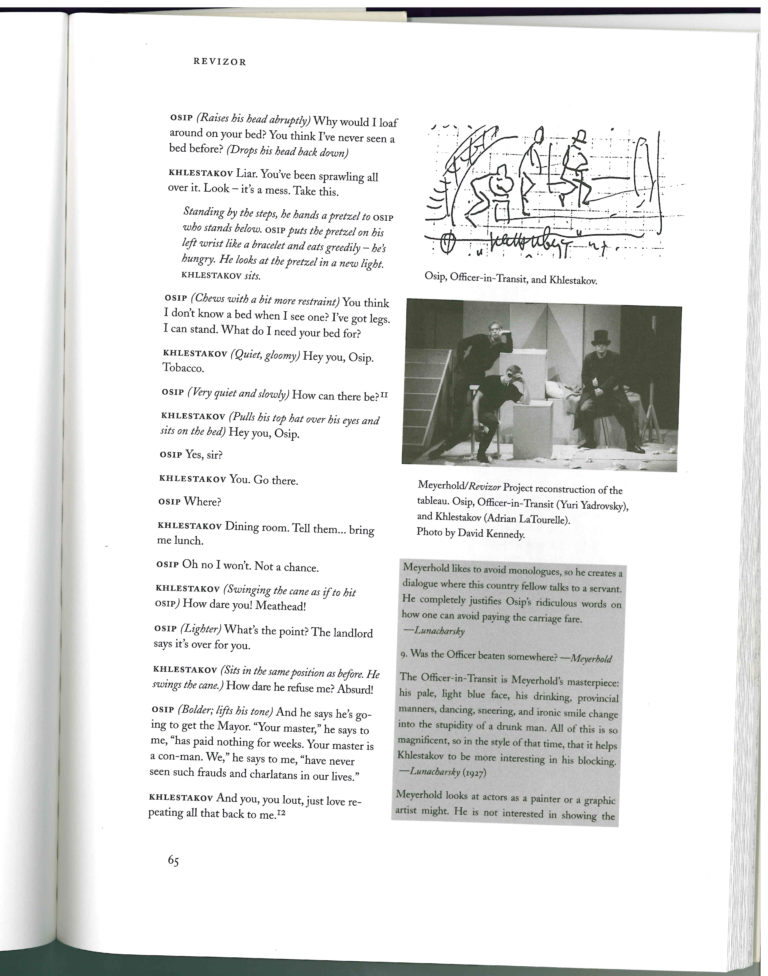 REVIZOR
OSIP (Raises his head abruptly) Why would I loaf
around on your bed? You think I've never seen a
bed before? (Drops his head back down)
KHLESTAKOV Liar. You've been sprawling all
over it. Look – it's a mess. Take this.
Standing by the steps, he hands a pretzel to OSIP
who stands below. OSIP puts the pretzel on his
left wrist like a bracelet and eats greedily – he's
hungry. He looks at the pretzel in a new light.
KHLESTAKOV sits.
OSIP (Chews with a bit more restraint) You think
I don't know a bed when I see one? I've got legs.
I can stand. What do I need your bed for?
KHLESTAKOV (Quiet, gloomy) Hey you, Osip.
Tobacco.
OSIP (Very quiet and slowly) How can there be?11
KHLESTAKOV (Pulls his top hat over his eyes and
sits on the bed) Hey you, Osip.
OSIP Yes, sir?
KHLESTAKOV You. Go there.
OSIP Where?
KHLESTAKOV Dining room. Tell them... bring
me lunch.
OSIP Oh no I won't. Not a chance.
KHLESTAKOV (Swinging the cane as if to hit
OSIP) How dare you! Meathead!
OSIP (Lighter) What's the point? The landlord
says it's over for you.
KHLESTAKOV (Sits in the same position as before. He
swings the cane.) How dare he refuse me? Absurd!
OSIP (Bolder; lifts his tone) And he says he's go-
ing to get the Mayor. "Your master," he says to
me, "has paid nothing for weeks. Your master is
a con-man. We," he says to me, "have never
seen such frauds and charlatans in our lives."
KHLESTAKOV And you, you lout, just love re-
peating all that back to me.12
65
Osip, Officer-in-Transit, and Khlestakov.
Meyerhold/Revizor Project reconstruction of the
tableau. Osip, Officer-in-Transit (Yuri Yadrovsky),
and Khlestakov (Adrian LaTourelle).
Photo by David Kennedy.
Meyerhold likes to avoid monologues, so he creates a
dialogue where this country fellow talks to a servant.
He completely justifies Osip's ridiculous words on
how one can avoid paying the carriage fare.
—Lunacharsky
9. Was the Officer beaten somewhere? —Meyerhold
The Officer-in-Transit is Meyerhold's masterpiece:
his pale, light blue face, his drinking, provincial
manners, dancing, sneering, and ironic smile change
into the stupidity of a drunk man. All of this is so
magnificent, so in the style of that time, that it helps
Khlestakov to be more interesting in his blocking.
—Lunacharsky (1927)
Meyerhold looks at actors as a painter or a graphic
artist might. He is not interested in showing the